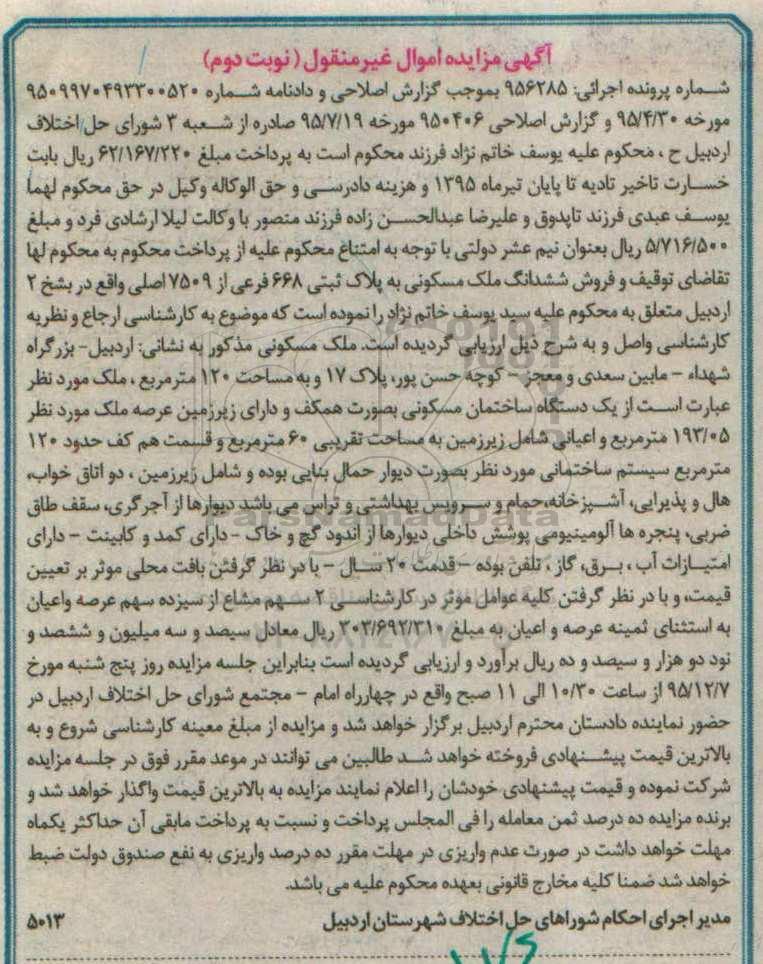 آگهی مزایده اموال غیرمنقول (نوبت دوم)
شماره پرونده اجرائی: ۹۵۶۲۸۵ بموجب گزارش اصلاحی و دادنامه شماره ۹۵۰۹۹۷۰۴۹۳۳۰۰۵۲۰
مورخه ۹۵/۴/۳۰ و گزارش اصلاحی ۹۵۰۴۰۶ مورخه ۹۵/۷/۱۹ صادره از شعبه ۳ شورای حل اختلاف
اردبیل ح ، محکوم علیه یوسف خاتم نژاد فرزند محکوم است به پرداخت مبلغ ۶۲/۱۶۷/۲۲۰ ریال بابت
خسارت تاخیر تادیه تا پایان تیرماه ۱۳۹۵ و هزینه دادرسی و حق الوکاله وکیل در حق محکوم لهما
یوسف عبدی فرزند تاپدوق و علیرضا عبدالحسن زاده فرزند منصور با وکالت لیلا ارشادی فرد و مبلغ
۵/۷۱۶/۵۰۰ ریال بعنوان نیم عشر دولتی با توجه به امتناع محکوم علیه از پرداخت محکوم به محکوم لها
تقاضای توقیف و فروش ششدانگ ملک مسکونی به پلاک ثبتی ۶۶۸ فرعی از ۷۵۰۹ اصلی واقع در بشخ ۲
اردبیل متعلق به محکوم علیه سید یوسف خاتم نژاد را نموده است که موضوع به کارشناسی ارجاع و نظریه
کارشناسی واصل و به شرح ذیل ارزیابی گردیده است. ملک مسکونی مذکور به نشانی: اردبیل- بزرگراه
شهداء – مابین سعدی و معجز – کوچه حسن پور، پلاک ۱۷ و به مساحت ۱۲۰ مترمربع ، ملک مورد نظر
عبارت است از یک دستگاه ساختمان مسکونی بصورت همکف و دارای زیرزمین عرصه ملک مورد نظر
۱۹۳/۰۵ مترمربع و اعیانی شامل زیرزمین به مساحت تقریبی ۶۰ مترمربع و قسمت هم کف حدود ۱۲۰
مترمربع سیستم ساختمانی مورد نظر بصورت دیوار حمال بنایی بوده و شامل زیرزمین ، دو اتاق خواب،
هال و پذیرایی، آشپزخانه،حمام و سرویس بهداشتی و تراس می باشد دیوارها از آجرگری، سقف طاق
ضربی، پنجره ها آلومینیومی پوشش داخلی دیوارها از اندود گچ و خاک - دارای کمد و کابینت – دارای
امتیازات آب ، برق، گاز ، تلفن بوده – قدمت ۲۰ سال – با در نظر گرفتن بافت محلی موثر بر تعیین
قیمت، و با در نظر گرفتن کلیه عوامل موثر در کارشناسی ۲ سهم مشاع از سیزده سهم عرصه واعیان
به استثنای ثمینه عرصه و اعیان به مبلغ ۳۰۳/۶۹۲/۳۱۰ ریال معادل سیصد و سه میلیون و ششصد و
نود دو هزار و سیصد و ده ریال برآورد و ارزیابی گردیده است بنابراین جلسه مزایده روز پنج شنبه مورخ
۹۵/۱۲/۷ از ساعت ۱۰/۳۰ الی ۱۱ صبح واقع در چهارراه امام – مجتمع شورای حل اختلاف اردبیل در
حضور نماینده دادستان محترم اردبیل برگزار خواهد شد و مزایده از مبلغ معینه کارشناسی شروع و به
بالاترین قیمت پیشنهادی فروخته خواهد شد طالبین می توانند در موعد مقرر فوق در جلسه مزایده
شرکت نموده و قیمت پیشنهادی خودشان را اعلام نمایند مزایده به بالاترین قیمت واگذار خواهد شد و
برنده مزایده ده درصد ثمن معامله را فی المجلس پرداخت و نسبت به پرداخت مابقی آن حداکثر یکماه
مهلت خواهد داشت در صورت عدم واریزی در مهلت مقرر ده درصد واریزی به نفع صندوق دولت ضبط
خواهد شد ضمنا کلیه مخارج قانونی بعهده محکوم علیه می باشد.
مدیر اجرای احکام شوراهای حل اختلاف شهرستان اردبیل ۵۰۱۳